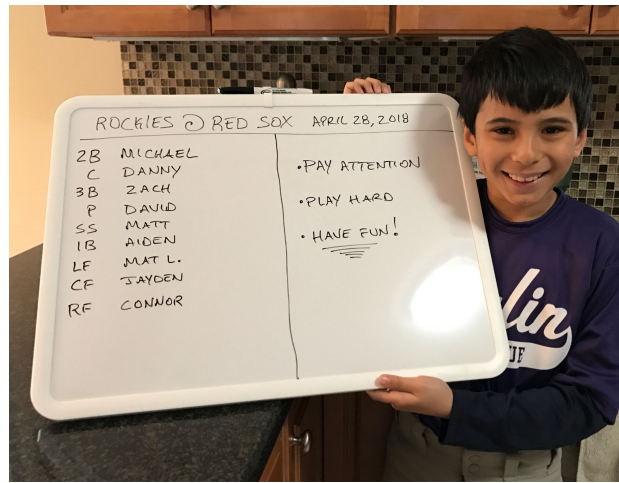 ROCKIES @ RED SOX APRIL 28, 2018
2B MICHAEL
C DANNY
3B ZACH
P DAVID
SS MATT
1B AIDEN
LF MAT L.
CF JAYDEN
RF CONNOR
• PAY ATTENTION
• PLAY HARD
• HAVE FUN!